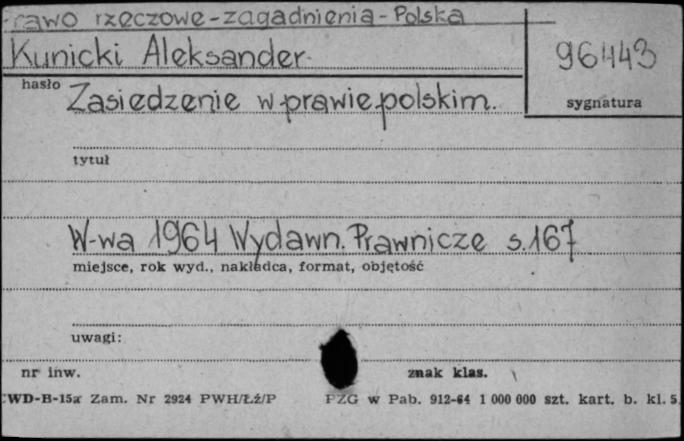 Prawo rzeczowe-zagadnienia-Polska
Kunicki Aleksander
96443
hasło
Zasiedzenie w prawie polskim.
sygnatura
tytuł
W-wa 1964 Wydawn. Prawnicze s.167
miejsce, rok wyd., nakładca, format, objętość
uwagi:
nr inw.
znak klas.
CWD-B-15a Zam. Nr 2924 PWH/Łź/P
PZG w Pab. 912-64 1 000 000 szt. kart. b. kl. 5